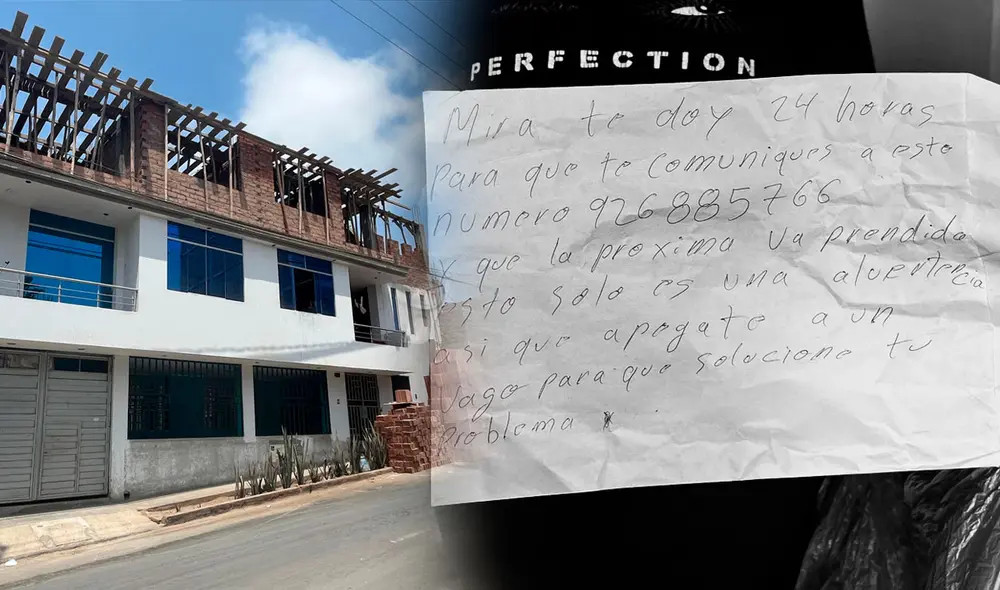 PERFECTION
Mira te doy 24 horas
para que te comuniques a este
numero 926885766
y que la proxima va prendida
esto solo es una alvertencia
asi que apegate a un
vago para que solucione tu
problema x